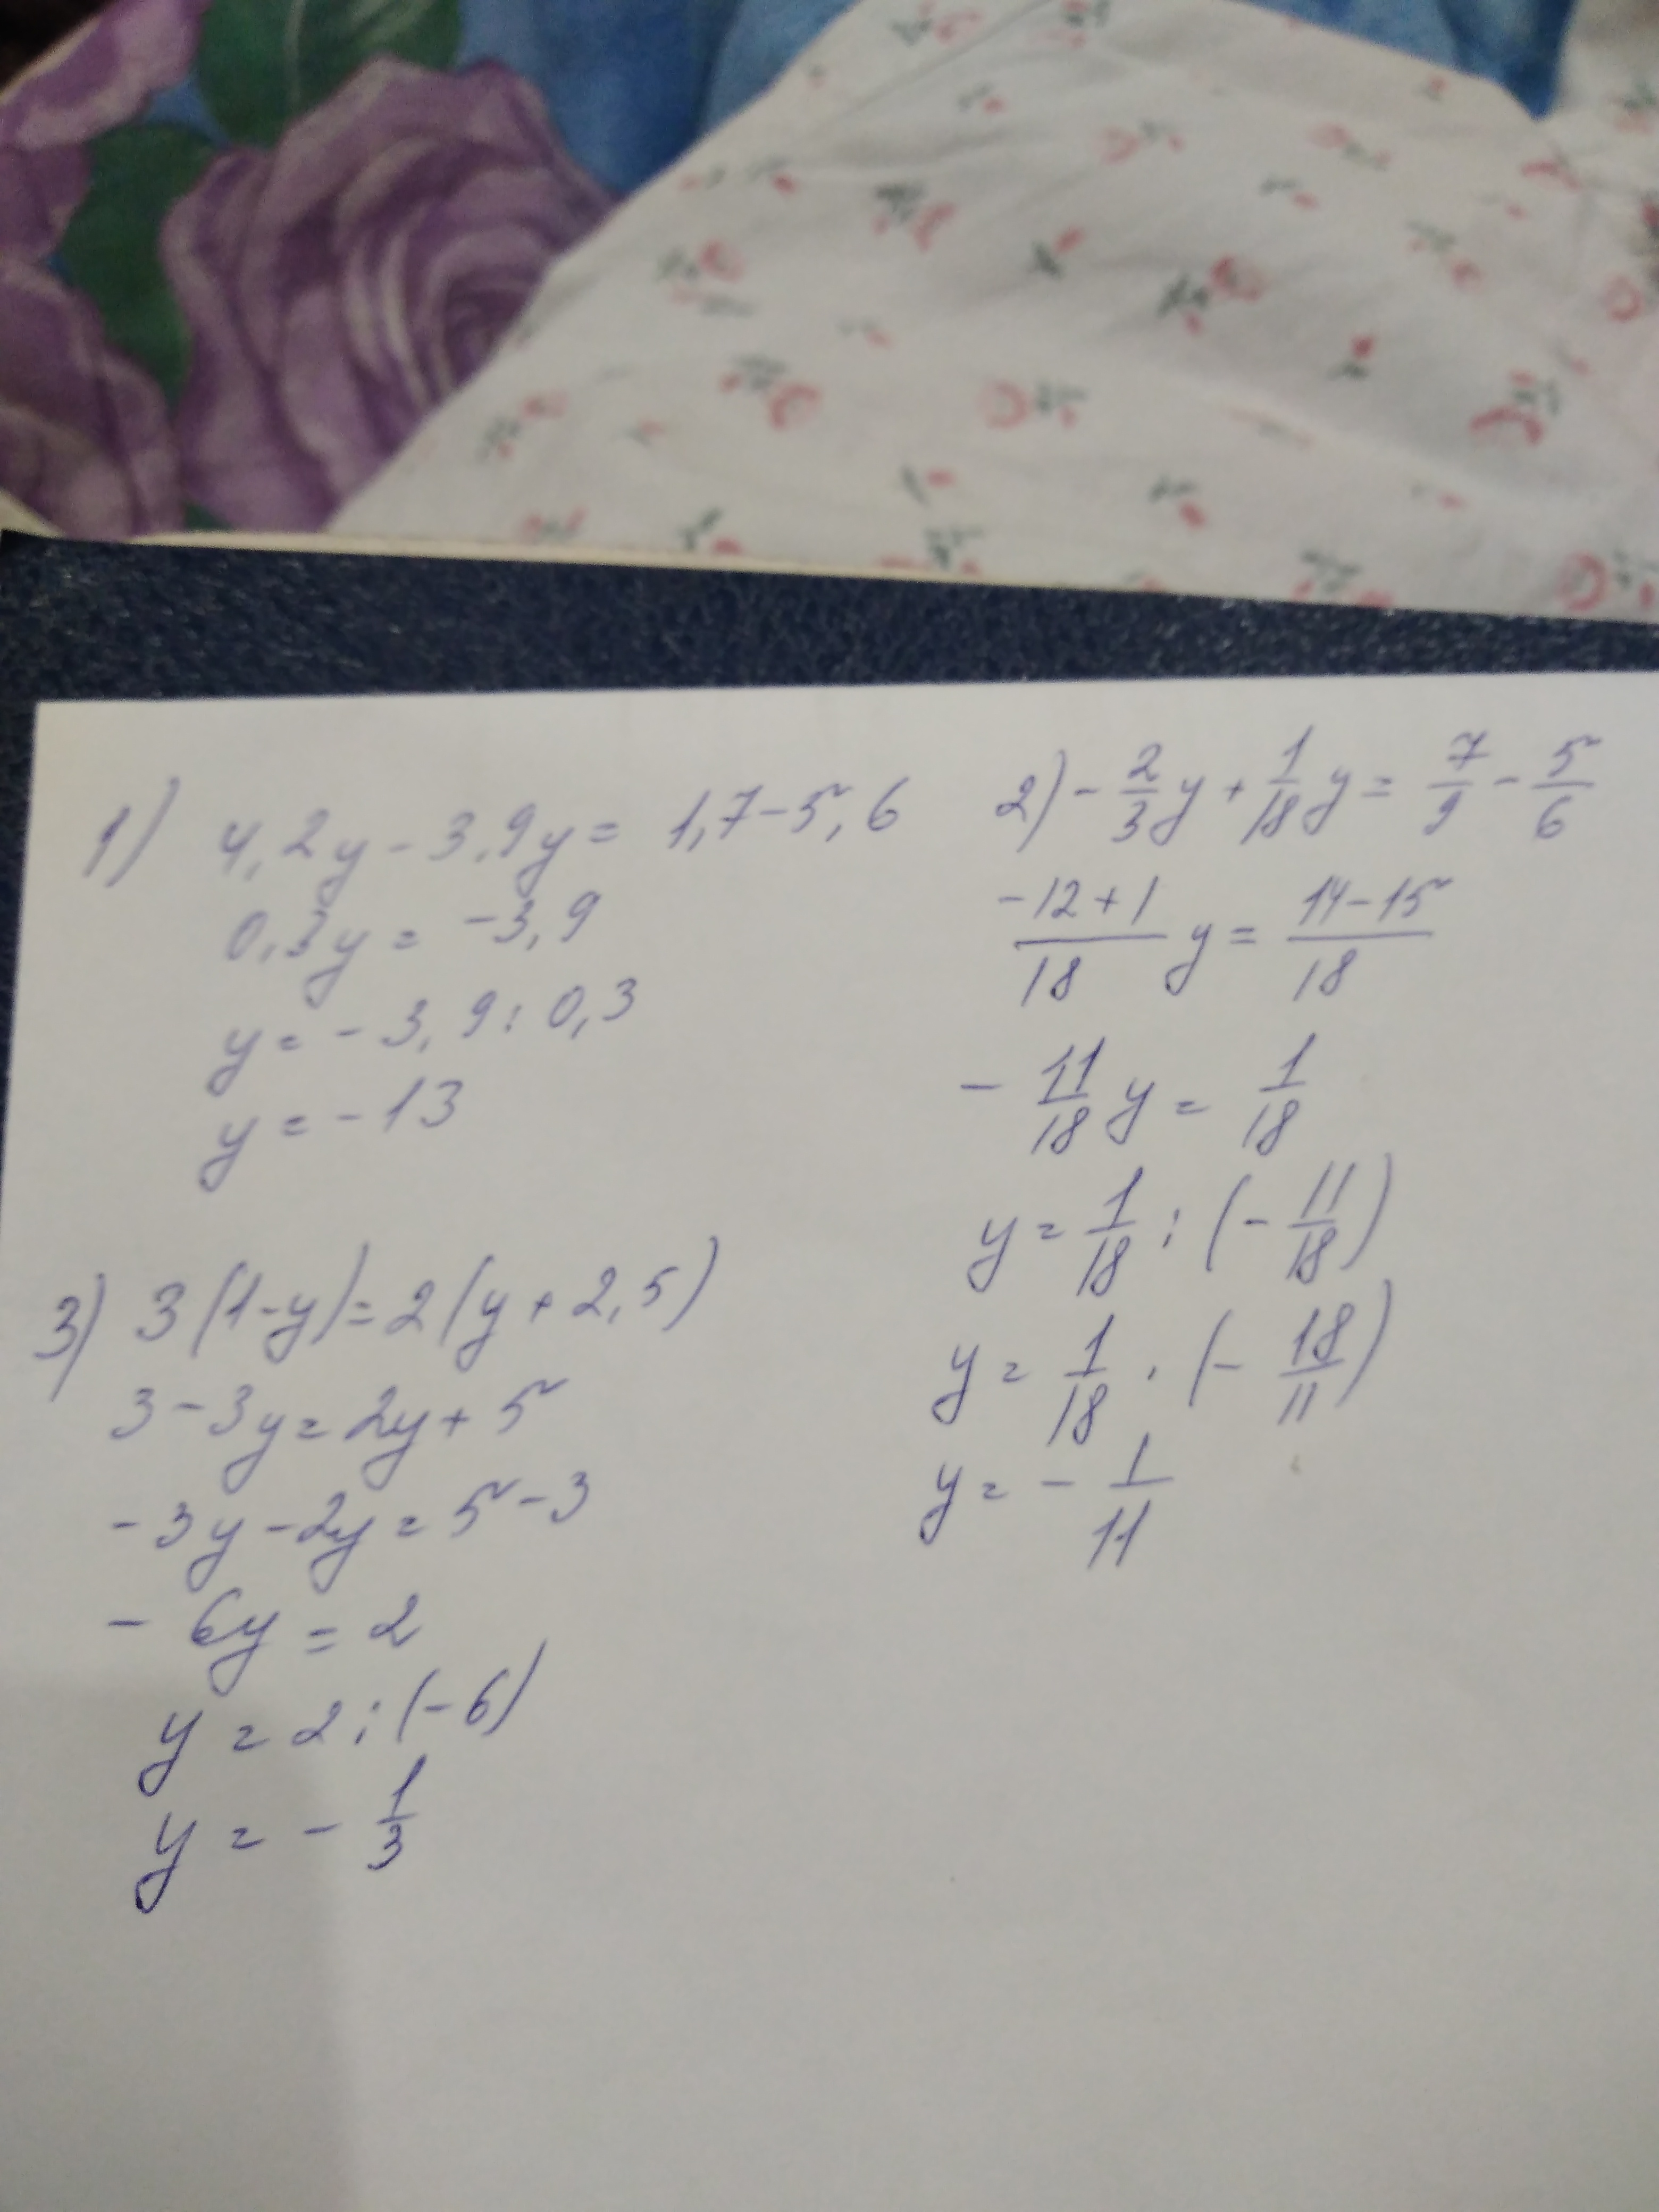 1) 4,2y - 3,9y = 1,7 - 5,6
0,3y = -3,9
y = -3,9 : 0,3
y = -13
2) - 2/3 y + 1/18 y = 7/9 - 5/6
-12+1/18 y = 14-15/18
- 11/18 y = 1/18
y = 1/18 : (- 11/18)
y = 1/18 · (- 18/11)
y = - 1/11
3) 3(1-y) = 2(y + 2,5)
3 - 3y = 2y + 5
- 3y - 2y = 5 - 3
- 6y = 2
y = 2 : (-6)
y = - 1/3